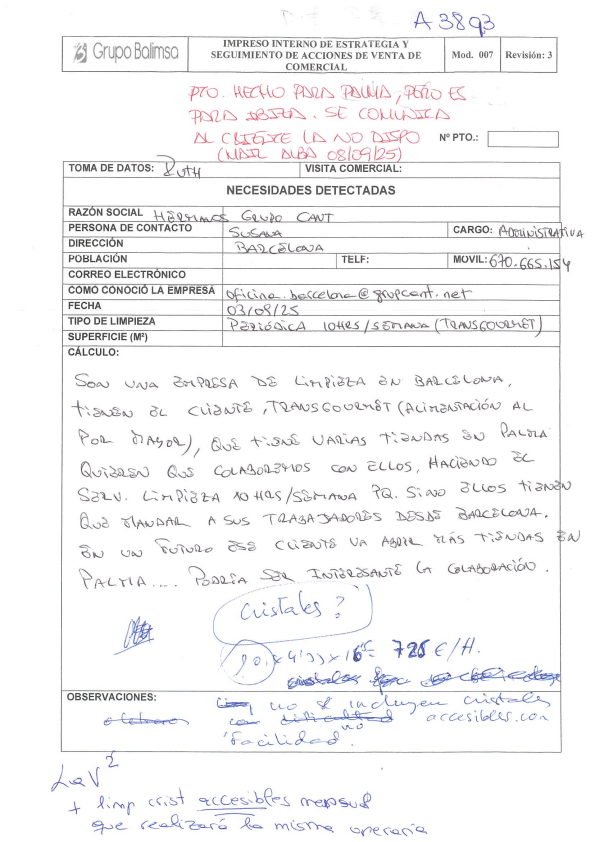 A 3893
Grupo Balimsa
IMPRESO INTERNO DE ESTRATEGIA Y
SEGUIMIENTO DE ACCIONES DE VENTA DE
COMERCIAL
Mod. 007
Revisión: 3
PTO. HECHO PARA PALMA, PERO ES
PARA IBIZA. SE COMUNICA
AL CLIENTE LA NO DISPO
(MAIL ALBA 08/09/25)
Nº PTO.:
TOMA DE DATOS: RUTH
VISITA COMERCIAL:
NECESIDADES DETECTADAS
RAZÓN SOCIAL Grupo CANT
PERSONA DE CONTACTO SUSANA
CARGO: ADMINISTRATIVA
DIRECCIÓN BARCELONA
POBLACIÓN
TELF:
MOVIL: 670.665.154
CORREO ELECTRÓNICO
COMO CONOCIÓ LA EMPRESA oficina.barcelona@grupcant.net
FECHA 03/09/25
TIPO DE LIMPIEZA PERIÓDICA 10HRS/SEMANA (TRANSGOURMET)
SUPERFICIE (M²)
CÁLCULO:
SON UNA EMPRESA DE LIMPIEZA EN BARCELONA,
TIENEN EL CLIENTE, TRANSGOURMET (ALIMENTACIÓN AL
POR MAYOR), QUE TIENE VARIAS TIENDAS EN PALMA
QUIEREN QUE COLABOREMOS CON ELLOS, HACIENDO EL
SERV. LIMPIEZA 10HRS/SEMANA PQ. SINO ELLOS TIENEN
QUE MANDAR A SUS TRABAJADORES DESDE BARCELONA.
EN UN FUTURO ESE CLIENTE VA ABRIR MÁS TIENDAS EN
PALMA.... PODRÍA SER INTERESANTE LA COLABORACIÓN.
Cristales?
x 4'33 x 16 = 725 €/H.
cristales
OBSERVACIONES:
no se incluyen cristales
con dificultad accesibles con
no
'facilidad'
L a V²
+ limp crist accesibles mensual
que realizará la misma operaria